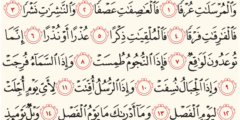 وَٱلْمُرْسَلَٰتِ عُرْفًا ١ فَٱلْعَٰصِفَٰتِ عَصْفًا ٢ وَٱلنَّٰشِرَٰتِ نَشْرًا ٣
فَٱلْفَٰرِقَٰتِ فَرْقًا ٤ فَٱلْمُلْقِيَٰتِ ذِكْرًا ٥ عُذْرًا أَوْ نُذْرًا ٦ إِنَّمَا
تُوعَدُونَ لَوَٰقِعٌ ٧ فَإِذَا ٱلنُّجُومُ طُمِسَتْ ٨ وَإِذَا ٱلسَّمَآءُ فُرِجَتْ
٩ وَإِذَا ٱلْجِبَالُ نُسِفَتْ ١٠ وَإِذَا ٱلرُّسُلُ أُقِّتَتْ ١١ لِأَيِّ يَوْمٍ أُجِّلَتْ
١٢ لِيَوْمِ ٱلْفَصْلِ ١٣ وَمَآ أَدْرَىٰكَ مَا يَوْمُ ٱلْفَصْلِ ١٤ وَيْلٌ يَوْمَئِذٍ